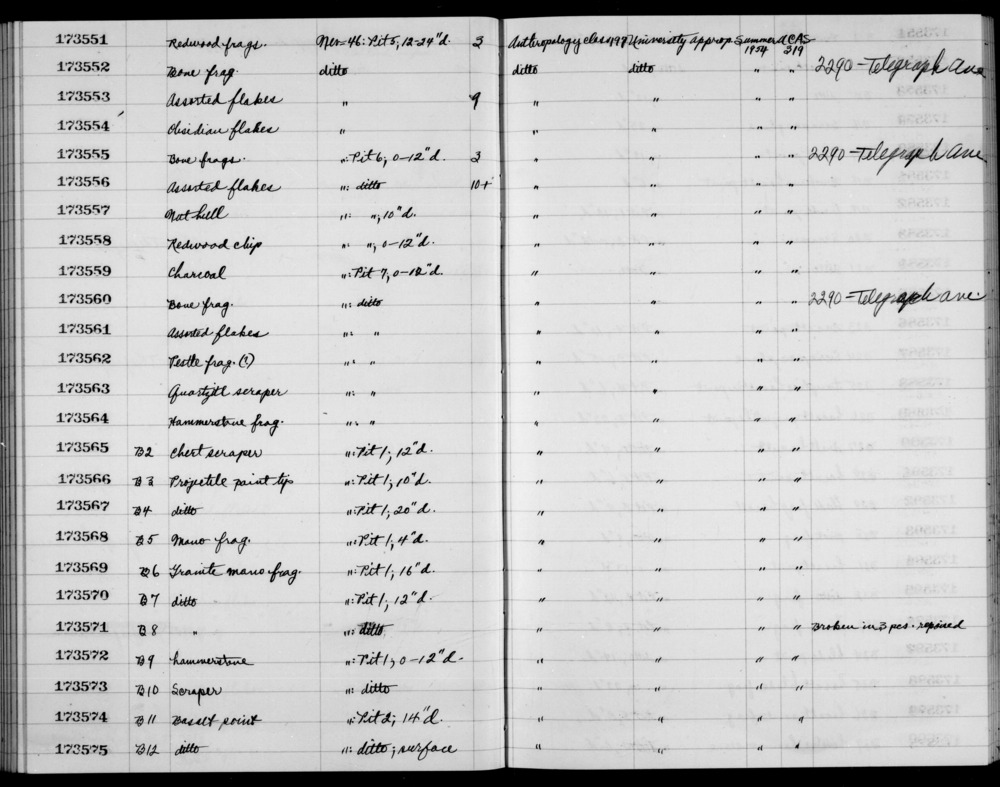 173551 Redwood frags. Nev-46: Pit 5; 12-24"d. 3 Anthropology class 197 University approp. Summer 1954 ACAS 319
173552 Bone frag. ditto ditto ditto " " 2290-Telegraph Ave
173553 Assorted flakes " 9 " " " "
173554 Obsidian flakes " " " " "
173555 Bone frags. ": Pit 6; 0-12"d. 3 " " " " 2290-Telegraph Ave
173556 Assorted flakes ": ditto 10+ " " " "
173557 Nutshell ": "; 10"d. " " " "
173558 Redwood chip " "; 0-12"d. " " " "
173559 Charcoal ": Pit 7; 0-12"d. " " " "
173560 Bone frag. ": ditto " " " " 2290-Telegraph ave.
173561 Assorted flakes ": " " " " "
173562 Pestle frag. (?) ": " " " " "
173563 Quartzite scraper ": " " " " "
173564 Hammerstone frag. ": " " " " "
173565 B2 Chert scraper ": Pit 1; 12"d. " " " "
173566 B3 Projectile point tip ": Pit 1; 10"d. " " " "
173567 B4 ditto ": Pit 1; 20"d. " " " "
173568 B5 Mano frag. ": Pit 1; 4"d. " " " "
173569 B6 Granite mano frag. ": Pit 1; 16"d. " " " "
173570 B7 ditto ": Pit 1; 12"d. " " " "
173571 B8 " ": ditto " " " " Broken in 3 pcs.
173572 B9 hammerstone ": Pit 1; 0-12"d. " " " "
173573 B10 Scraper ": ditto " " " "
173574 B11 Basalt point ": Pit 2; 14"d. " " " "
173575 B12 ditto ": ditto; surface " " " "